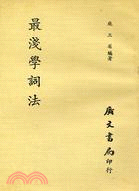 最淺學詞法
庭三省編著
廣文書局印行